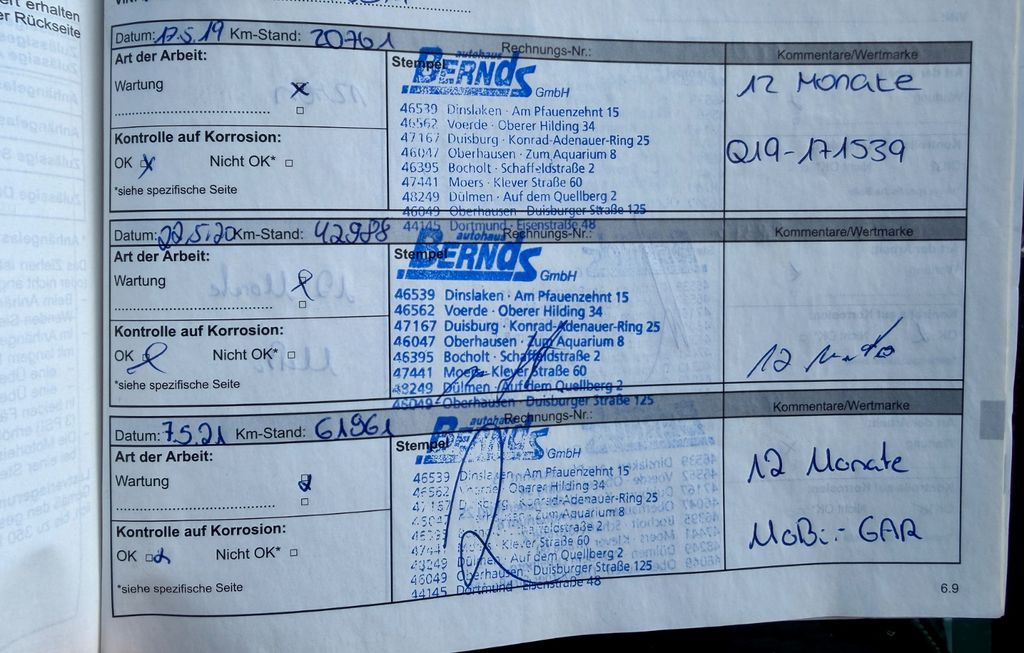 erhalten
er Rückseite
Datum: 17.5.19 Km-Stand: 20761 Rechnungs-Nr.: Kommentare/Wertmarke
Art der Arbeit:
Wartung x
Kontrolle auf Korrosion:
OK x Nicht OK*
*siehe spezifische Seite
Stempel autohaus
BERNDS
GmbH
46539 Dinslaken · Am Pfauenzehnt 15
46562 Voerde · Oberer Hilding 34
47167 Duisburg · Konrad-Adenauer-Ring 25
46047 Oberhausen · Zum Aquarium 8
46395 Bocholt · Schaffeldstraße 2
47441 Moers · Klever Straße 60
48249 Dülmen · Auf dem Quellberg 2
46049 Oberhausen · Duisburger Straße 125
44145 Dortmund · Eisenstraße 48
12 Monate
Q19-171539
Datum: 22.5.20 Km-Stand: 42988 Rechnungs-Nr.: Kommentare/Wertmarke
Art der Arbeit:
Wartung
Kontrolle auf Korrosion:
OK Nicht OK*
*siehe spezifische Seite
Stempel autohaus
BERNDS
GmbH
46539 Dinslaken · Am Pfauenzehnt 15
46562 Voerde · Oberer Hilding 34
47167 Duisburg · Konrad-Adenauer-Ring 25
46047 Oberhausen · Zum Aquarium 8
46395 Bocholt · Schaffeldstraße 2
47441 Moers · Klever Straße 60
48249 Dülmen · Auf dem Quellberg 2
46049 Oberhausen · Duisburger Straße 125
12
Datum: 7.5.21 Km-Stand: 61961 Rechnungs-Nr.: Kommentare/Wertmarke
Art der Arbeit:
Wartung
Kontrolle auf Korrosion:
OK Nicht OK*
*siehe spezifische Seite
Stempel autohaus
BERNDS
GmbH
46539 Dinslaken · Am Pfauenzehnt 15
46562 Voerde · Oberer Hilding 34
47167 Duisburg · Konrad-Adenauer-Ring 25
46047 Oberhausen · Zum Aquarium 8
Schaffeldstraße 2
47441 Klever Straße 60
48249 Dülmen · Auf dem Quellberg 2
46049 Oberhausen · Duisburger Straße 125
44145 Dortmund · Eisenstraße 48
12 Monate
MoBi-GAR
6.9